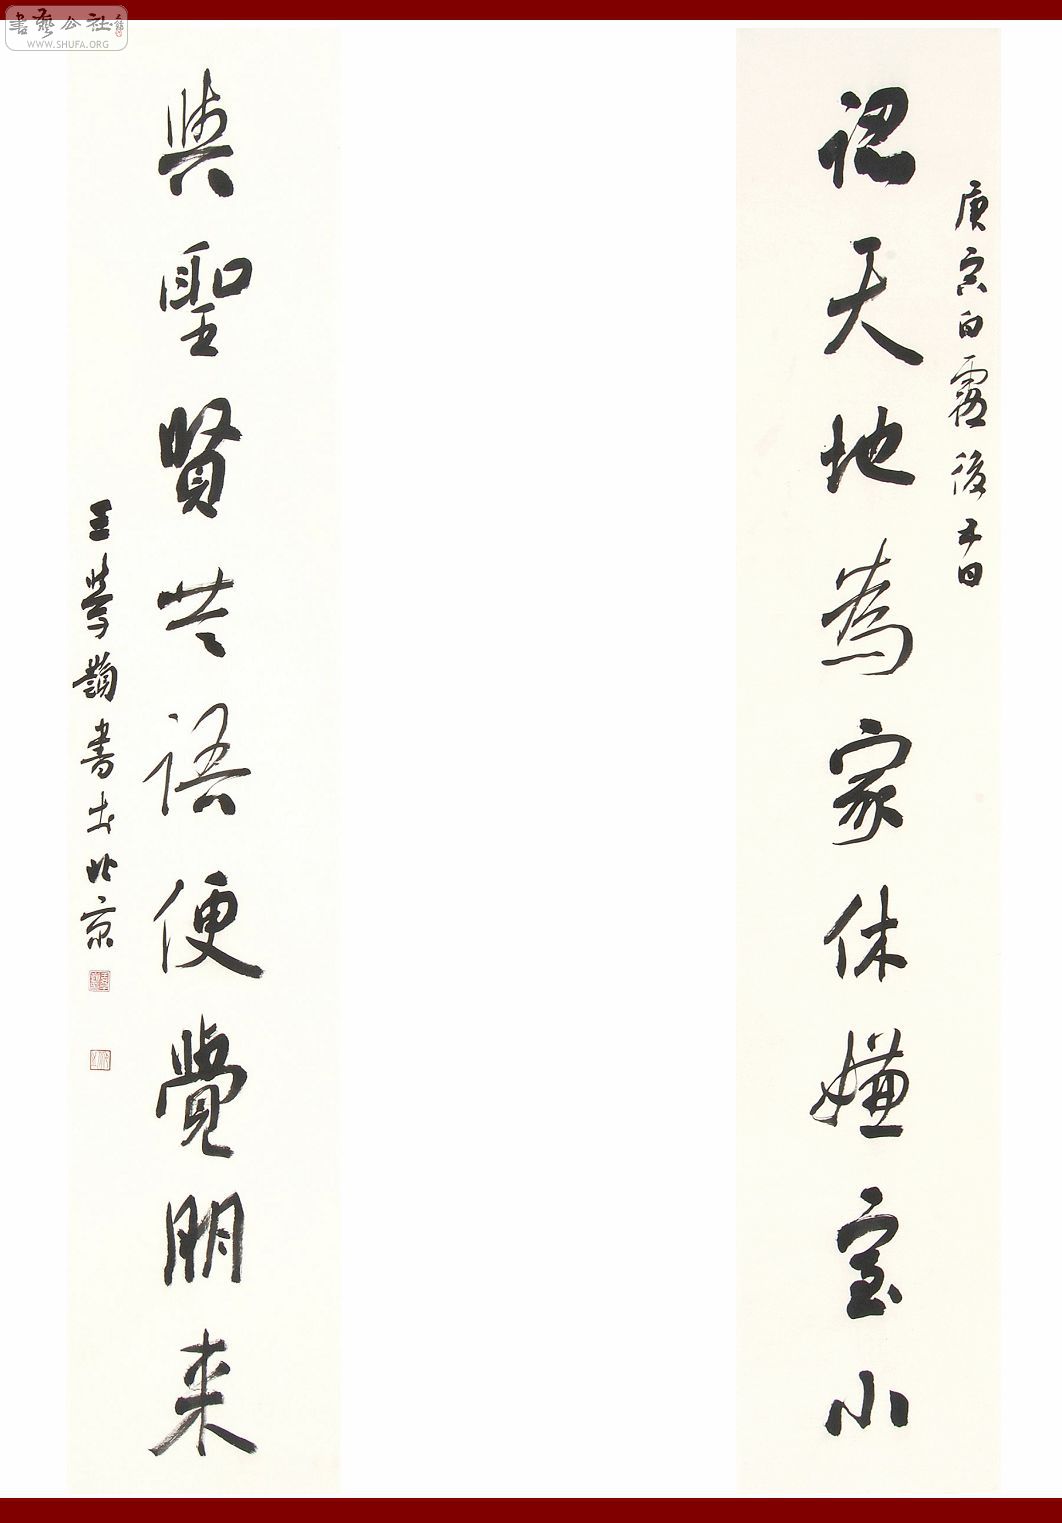 書藝公社
WWW.SHUFA.ORG
庚寅白露後五日
認天地為家休嫌室小
與聖賢共語便覺朋来
王學嶺書於北京